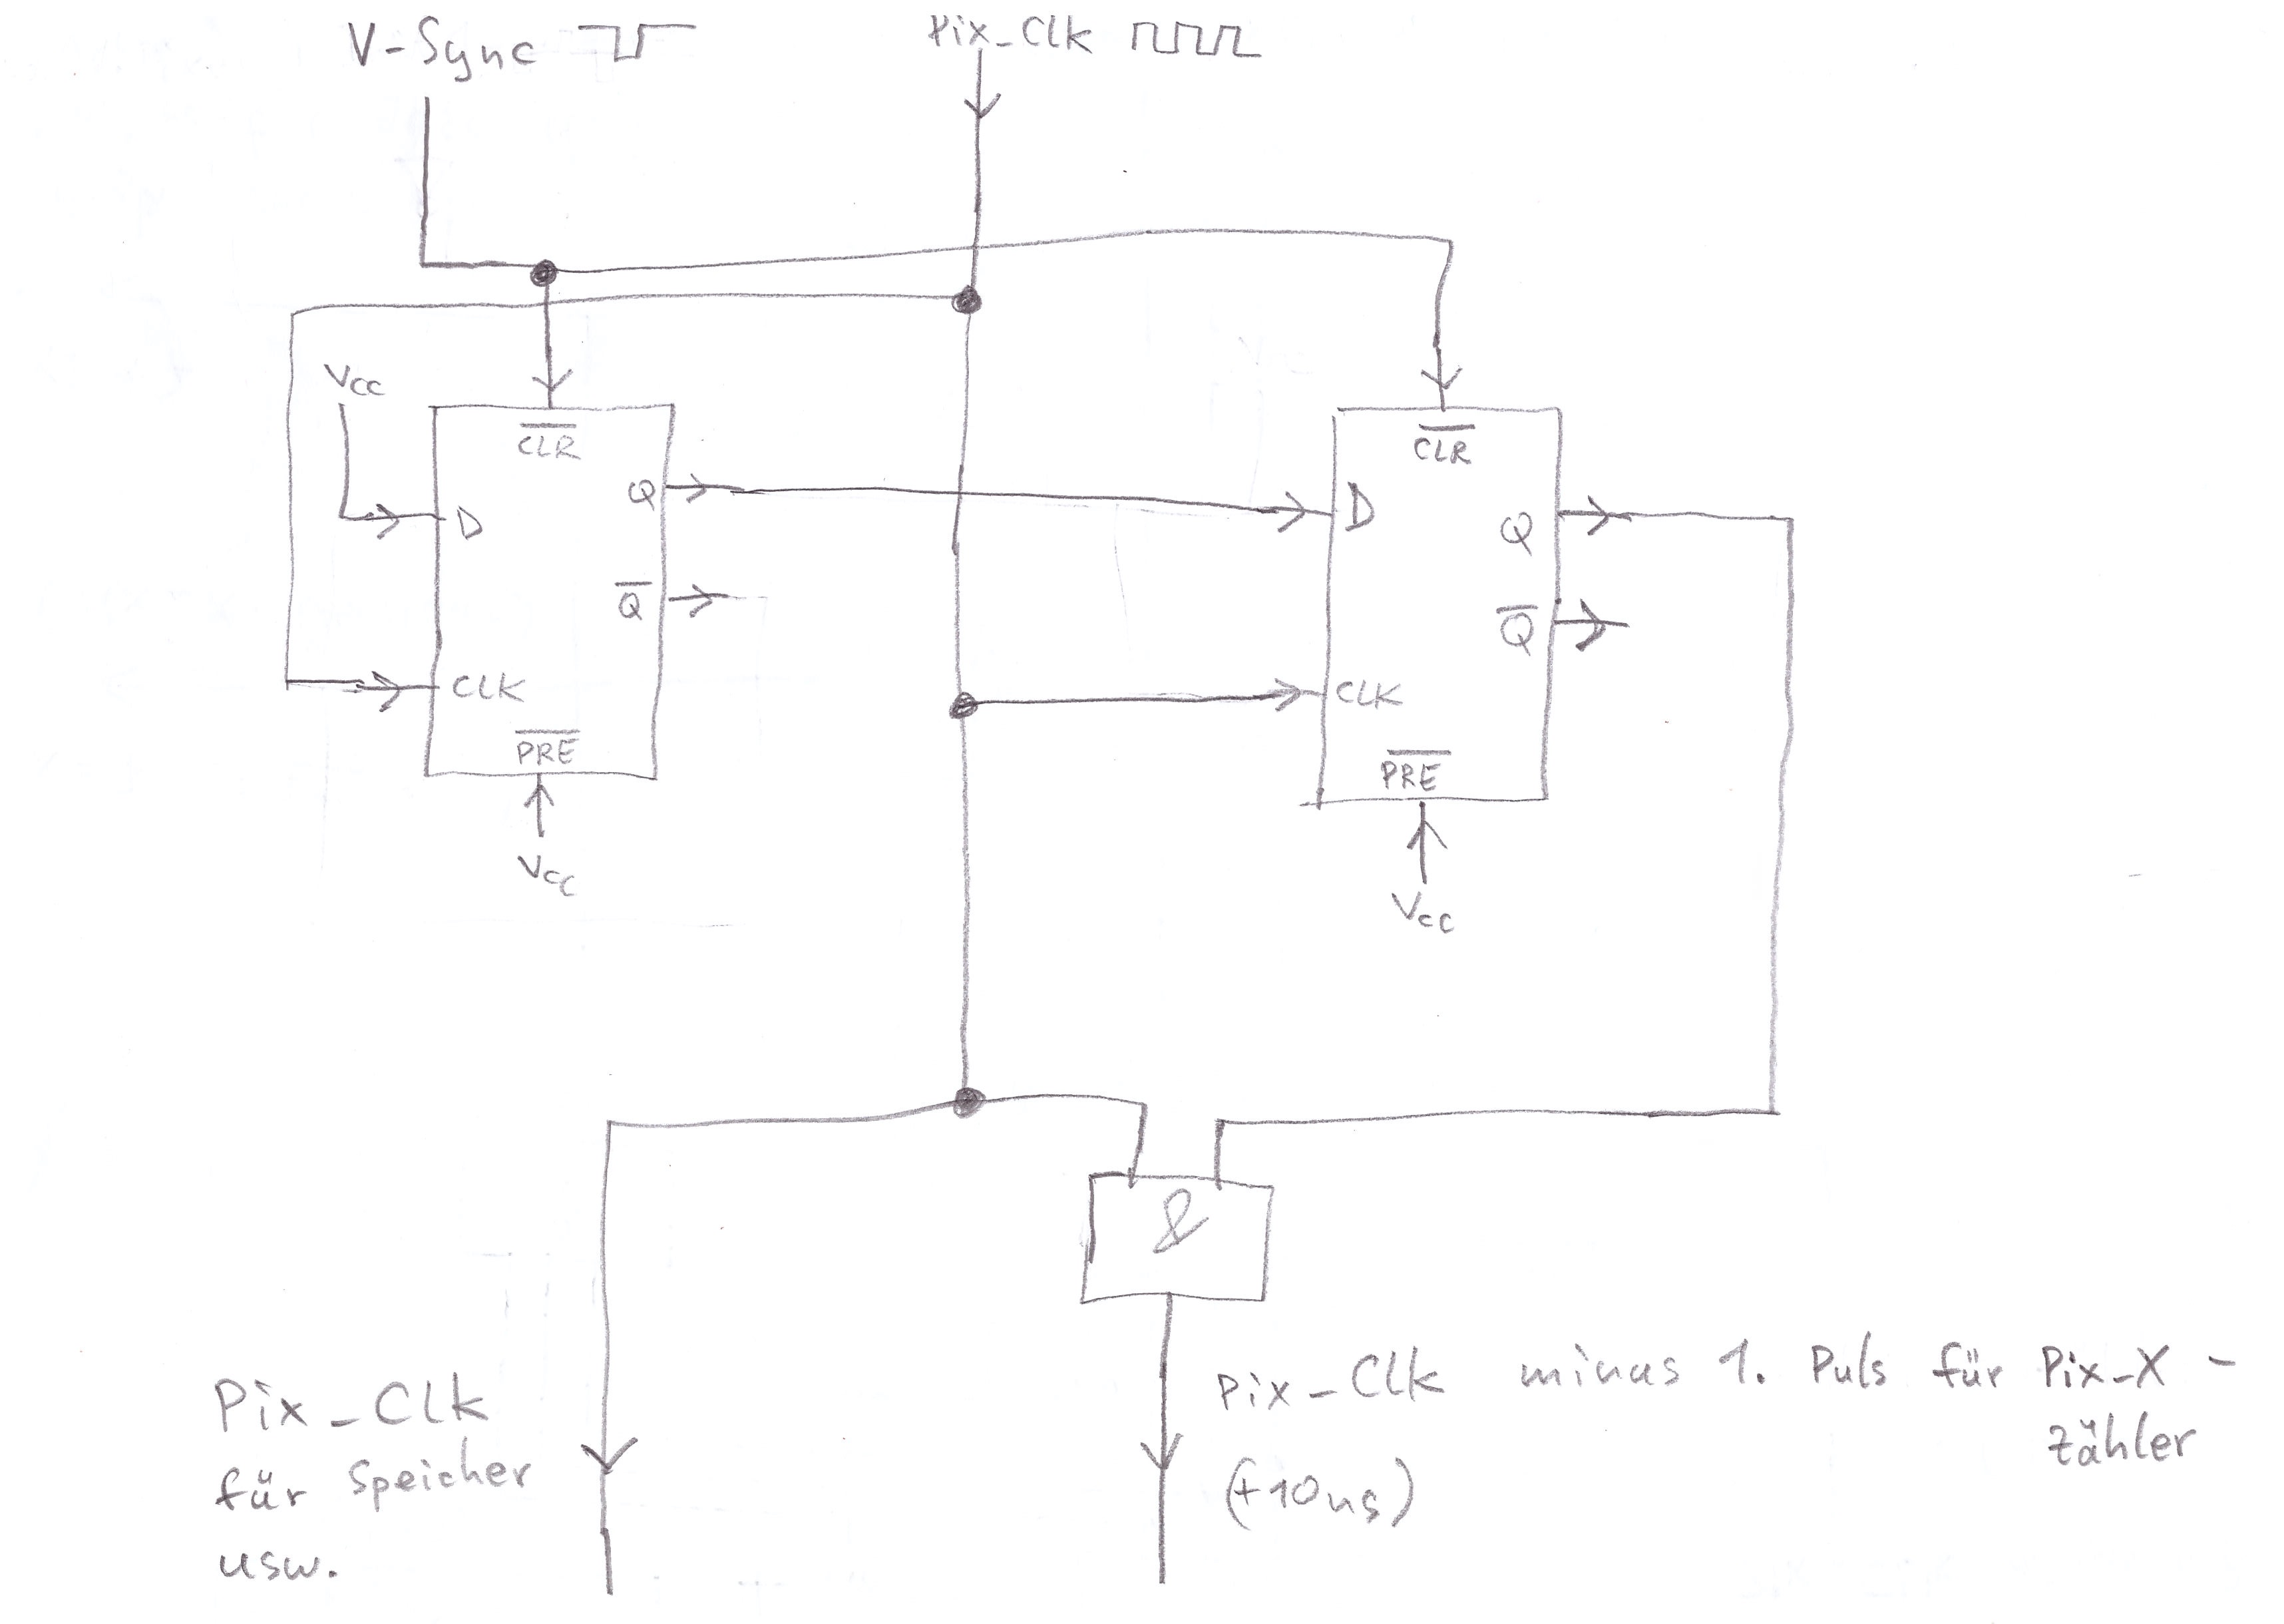 V-Sync
Pix_Clk
Vcc
CLR
D
Q
Q
CLK
PRE
Vcc
CLR
D
Q
Q
CLK
PRE
Vcc
&
Pix_Clk
für Speicher
usw.
Pix_Clk minus 1. Puls für Pix_X-
zähler
(+10ns)